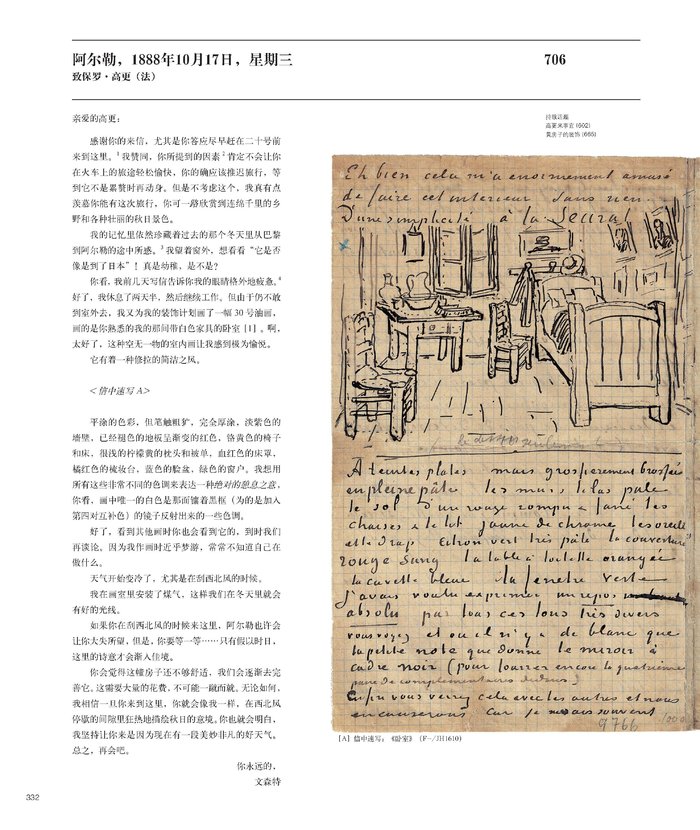 阿尔勒，1888年10月17日，星期三
706
致保罗·高更（法）
持续话题
高更来李宜 (602)
黄房子的装饰 (665)
亲爱的高更：
感谢你的来信，尤其是你答应尽早赶在二十号前
来到这里。1 我赞同，你所提到的因素 2 肯定不会让你
在火车上的旅途轻松愉快，你的确应该推迟旅行，等
到它不是累赘时再动身。但是不考虑这个，我真有点
羡慕你能有这次旅行，你可一路欣赏到连绵千里的乡
野和各种壮丽的秋日景色。
我的记忆里依然珍藏着过去的那个冬天里从巴黎
到阿尔勒的途中所感。3 我望着窗外，想看看“它是否
像是到了日本”！真是幼稚，是不是？
你看，我前几天写信告诉你我的眼睛格外地疲惫。4
好了，我休息了两天半，然后继续工作。但由于仍不敢
到室外去，我又为我的装饰计划画了一幅 30 号油画，
画的是你熟悉的我的那间带白色家具的卧室 [1]。啊，
太好了，这种空无一物的室内画让我感到极为愉悦。
它有着一种修拉的简洁之风。
＜信中速写 A＞
平涂的色彩，但笔触粗犷，完全厚涂，淡紫色的
墙壁，已经褪色的地板呈渐变的红色，铬黄色的椅子
和床，很浅的柠檬黄的枕头和被单，血红色的床罩，
橘红色的梳妆台，蓝色的脸盆，绿色的窗户。我想用
所有这些非常不同的色调来表达一种绝对的憩息之意，
你看，画中唯一的白色是那面镶着黑框（为的是加入
第四对互补色）的镜子反射出来的一些色调。
好了，看到其他画时你也会看到它的，到时我们
再谈论。因为我作画时近乎梦游，常常不知道自己在
做什么。
天气开始变冷了，尤其是在刮西北风的时候。
我在画室里安装了煤气，这样我们在冬天里就会
有好的光线。
如果你在刮西北风的时候来这里，阿尔勒也许会
让你大失所望，但是，你要等一等……只有假以时日，
这里的诗意才会渐入佳境。
你会觉得这幢房子还不够舒适，我们会逐渐去完
善它。这需要大量的花费，不可能一蹴而就。无论如何，
我相信一旦你来到这里，你就会像我一样，在西北风
停歇的间隙里狂热地描绘秋日的意境。你也就会明白，
我坚持让你来是因为现在有一段美妙非凡的好天气。
总之，再会吧。
你永远的，
文森特
Eh bien cela m'a enormement amusé
de faire cet interieur sans rien.
D'une simplicité à la Seurat
A teintes plates mais grossierement brossées
en pleine pâte les murs lilas pale
le sol d'un rouge rompu & fané les
chaises & le lit jaune de chrome les oreillers
et le drap citron vert très pâle la couverture
rouge sang la table à toilette orangée
la cuvette bleue la fenetre verte
J'avais voulu exprimer un repos
absolu par tous ces tons très divers
vous voyez et où il n'y a de blanc que
la petite note que donne le miroir à
cadre noir (pour fourrer encore la quatrième
paire de complementaires dedans)
Enfin vous verrez cela avec les autres et nous
en causerons car je ne sais souvent
9766
[A] 信中速写：《卧室》 (F—/JH1610)
332